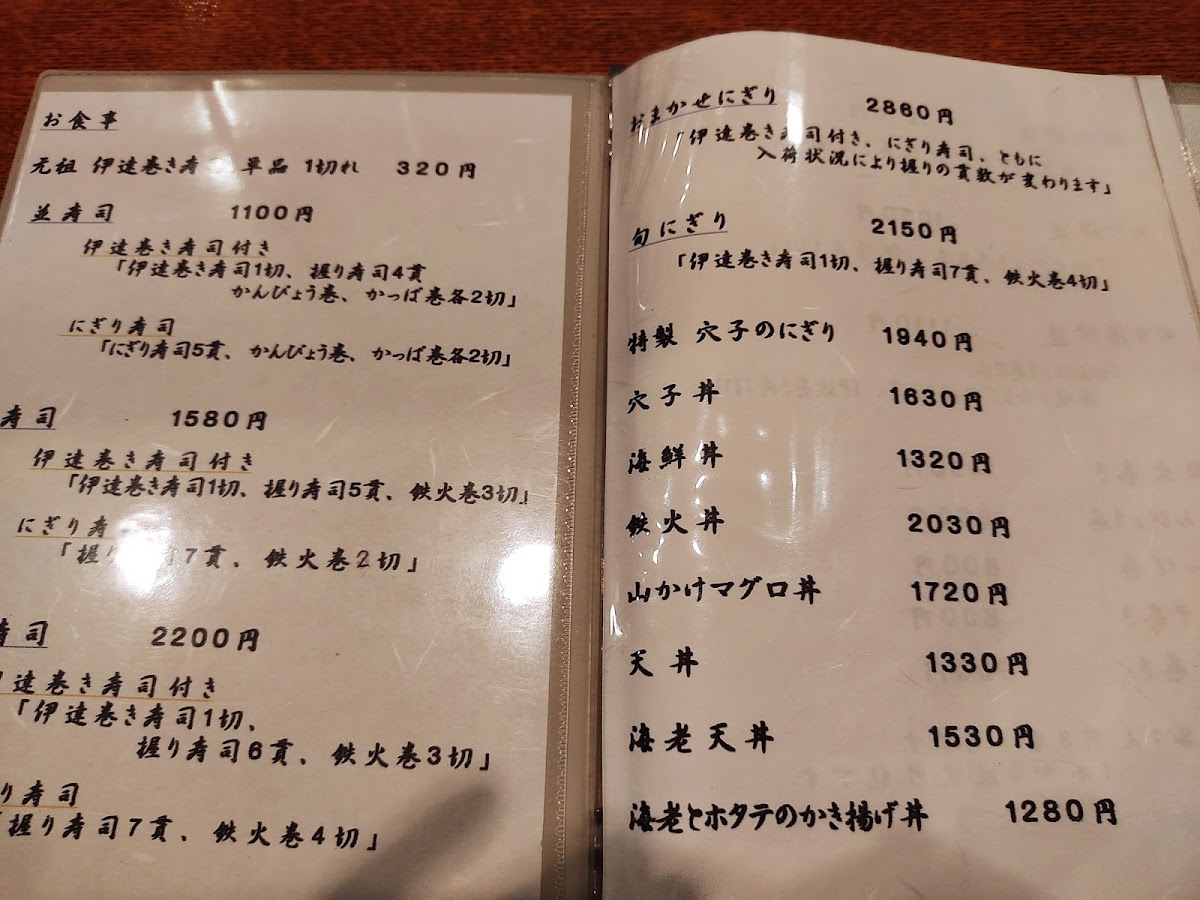 お食事
元祖 伊達巻き寿 単品 1切れ 320円
並寿司 1100円
伊達巻き寿司付き
「伊達巻き寿司1切、握り寿司4貫
かんぴょう巻、かっぱ巻各2切」
にぎり寿司
「にぎり寿司5貫、かんぴょう巻、かっぱ巻各2切」
寿司 1580円
伊達巻き寿司付き
「伊達巻き寿司1切、握り寿司5貫、鉄火巻3切」
にぎり寿
「握り 7貫、鉄火巻2切」
寿司 2200円
達巻き寿司付き
「伊達巻き寿司1切、
握り寿司6貫、鉄火巻3切」
り寿司
「握り寿司7貫、鉄火巻4切」
おまかせにぎり 2860円
「伊達巻き寿司付き、にぎり寿司、ともに
入荷状況により握りの貫数が変わります」
旬にぎり 2150円
「伊達巻き寿司1切、握り寿司7貫、鉄火巻4切」
特製 穴子のにぎり 1940円
穴子丼 1630円
海鮮丼 1320円
鉄火丼 2030円
山かけマグロ丼 1720円
天丼 1330円
海老天丼 1530円
海老とホタテのかき揚げ丼 1280円